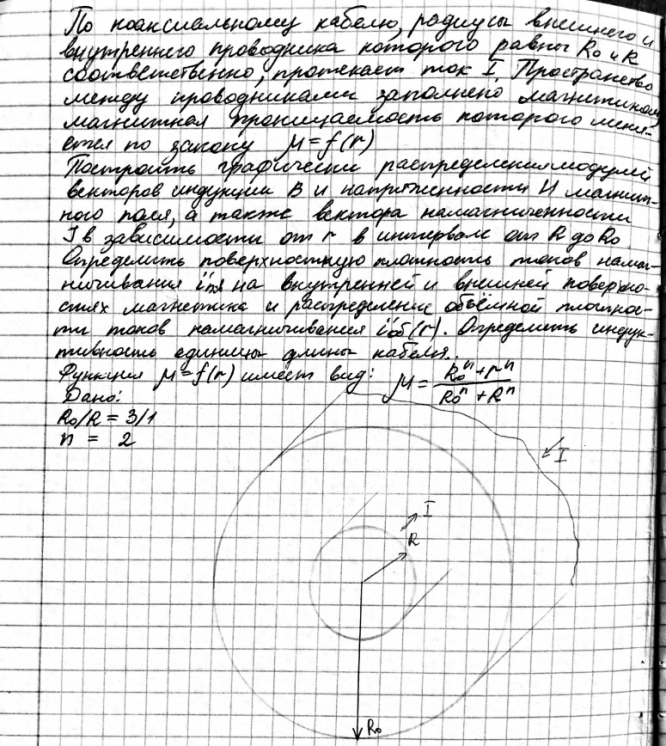 По коаксиальному кабелю, радиусы внешнего и
внутреннего проводника которого равны R₀ и R
соответственно, протекает ток I. Пространство
между проводниками заполнено магнетиком,
магнитная проницаемость которого меня-
ется по закону μ=f(r)
Построить графически распределения модулей
векторов индукции B и напряженности H магнит-
ного поля, а также вектора намагниченности
J в зависимости от r в интервале от R до R₀
Определить поверхностную плотность токов намаг-
ничивания i'пов на внутренней и внешней поверхно-
стях магнетика и распределение объёмной плотнос-
ти токов намагничивания i'об(r). Определить индук-
тивность единицы длины кабеля.
Функция μ=f(r) имеет вид: μ = (R₀ⁿ+rⁿ)/(R₀ⁿ+Rⁿ)
Дано:
R₀/R = 3/1
n = 2
I
I
R
R₀